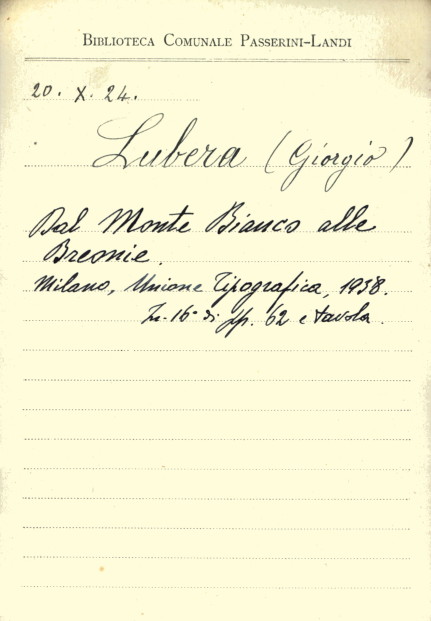 BIBLIOTECA COMUNALE PASSERINI-LANDI
20. X. 24.
Lubera (Giorgio)
Dal Monte Bianco alle
Breonie.
Milano, Unione Tipografica, 1938.
In-16° di pp. 62 e tavola.